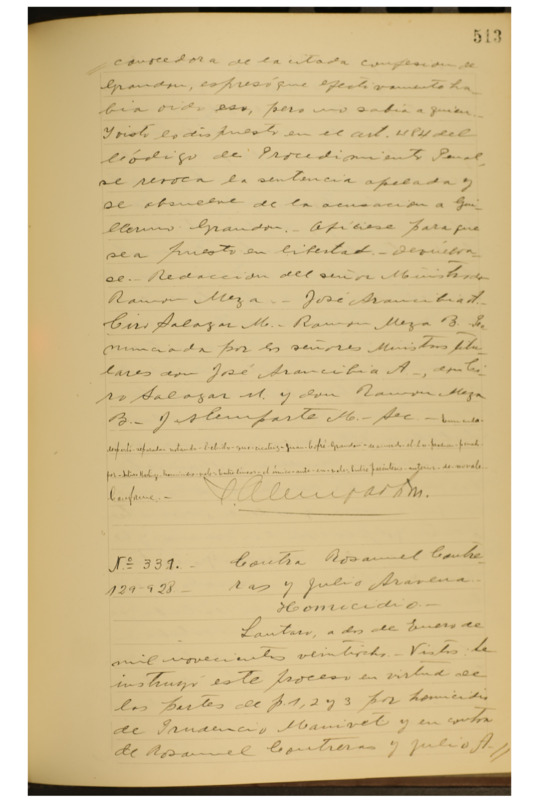 513
conocedora de la citada confesion de
Grandon, espresó que efectivamente ha-
bia oido eso, pero no sabia a quien.
Y visto lo dispuesto en el art. 484 del
Código de Procedimiento Penal,
se revoca la sentencia apelada y
se absuelve de la acusacion a Gui-
llermo Grandon.- Ofíciese para que
sea puesto en libertad.- Devuélva-
se.- Redaccion del señor Ministro don
Ramon Meza.- José Arancibia A.-
Ciro Salazar M.- Ramon Meza B. Pro-
nunciada por los señores Ministros titu-
lares don José Arancibia A-, don Ci-
ro Salazar M. y don Ramon Meza
B.- J. Alemparte M.- Sec-
Conforme.-
Nº 331.- Contra Rosamel Contre-
129-928- ras y Julio Aravena.
Homicidio-
Santiago, a dos de Enero de
mil novecientos veintiocho.- Vistos: Se
instruyó este proceso en virtud de
los partes de f. 1, 2 y 3 por homicidio
de Prudencio y en contra
de Rosamel Contreras y Julio A-